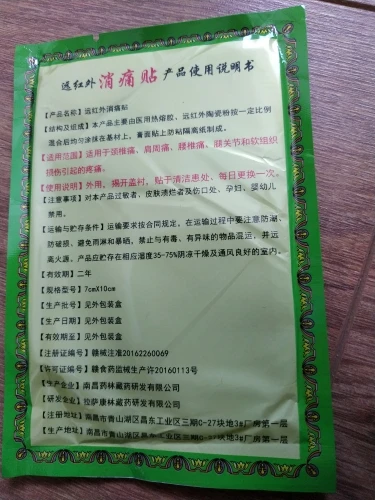 远红外消痛贴产品使用说明书
【产品名称】远红外消痛贴
【结构及组成】本产品主要由医用热熔胶、远红外陶瓷粉按一定比例
混合后均匀涂抹在基材上。膏面贴上防粘隔离纸制成。
【适用范围】适用于颈椎痛、肩周痛、腰椎痛、髋关节和软组织
损伤引起的疼痛。
【使用说明】外用，揭开盖衬，贴于清洁患处、每日更换一次。
【注意事项】对本产品过敏者、皮肤溃烂者及伤口处、孕妇、婴幼儿
禁用。
【运输与贮存条件】运输要求按合同规定，在运输过程中要注意防潮、
防破损、避免雨淋和暴晒，禁止与有毒、有异味的物品混运，并远
离火源。产品应贮存在相应湿度35-75%阴凉干燥及通风良好的室内。
【有效期】二年
【规格型号】7cmX10cm
【生产批号】见外包装盒
【生产日期】见外包装盒
【有效期至】见外包装盒
【注册证编号】赣械注准20162260069
【许可证编号】赣食药监械生产许20160113号
【生产企业】南昌药林藏药研发有限公司
【研发企业】拉萨康林藏药研发有限公司
【注册地址】南昌市青山湖区昌东工业区三期C-27块地3#厂房第一层
【生产地址】南昌市青山湖区昌东工业区三期C-27块地3#厂房第一层